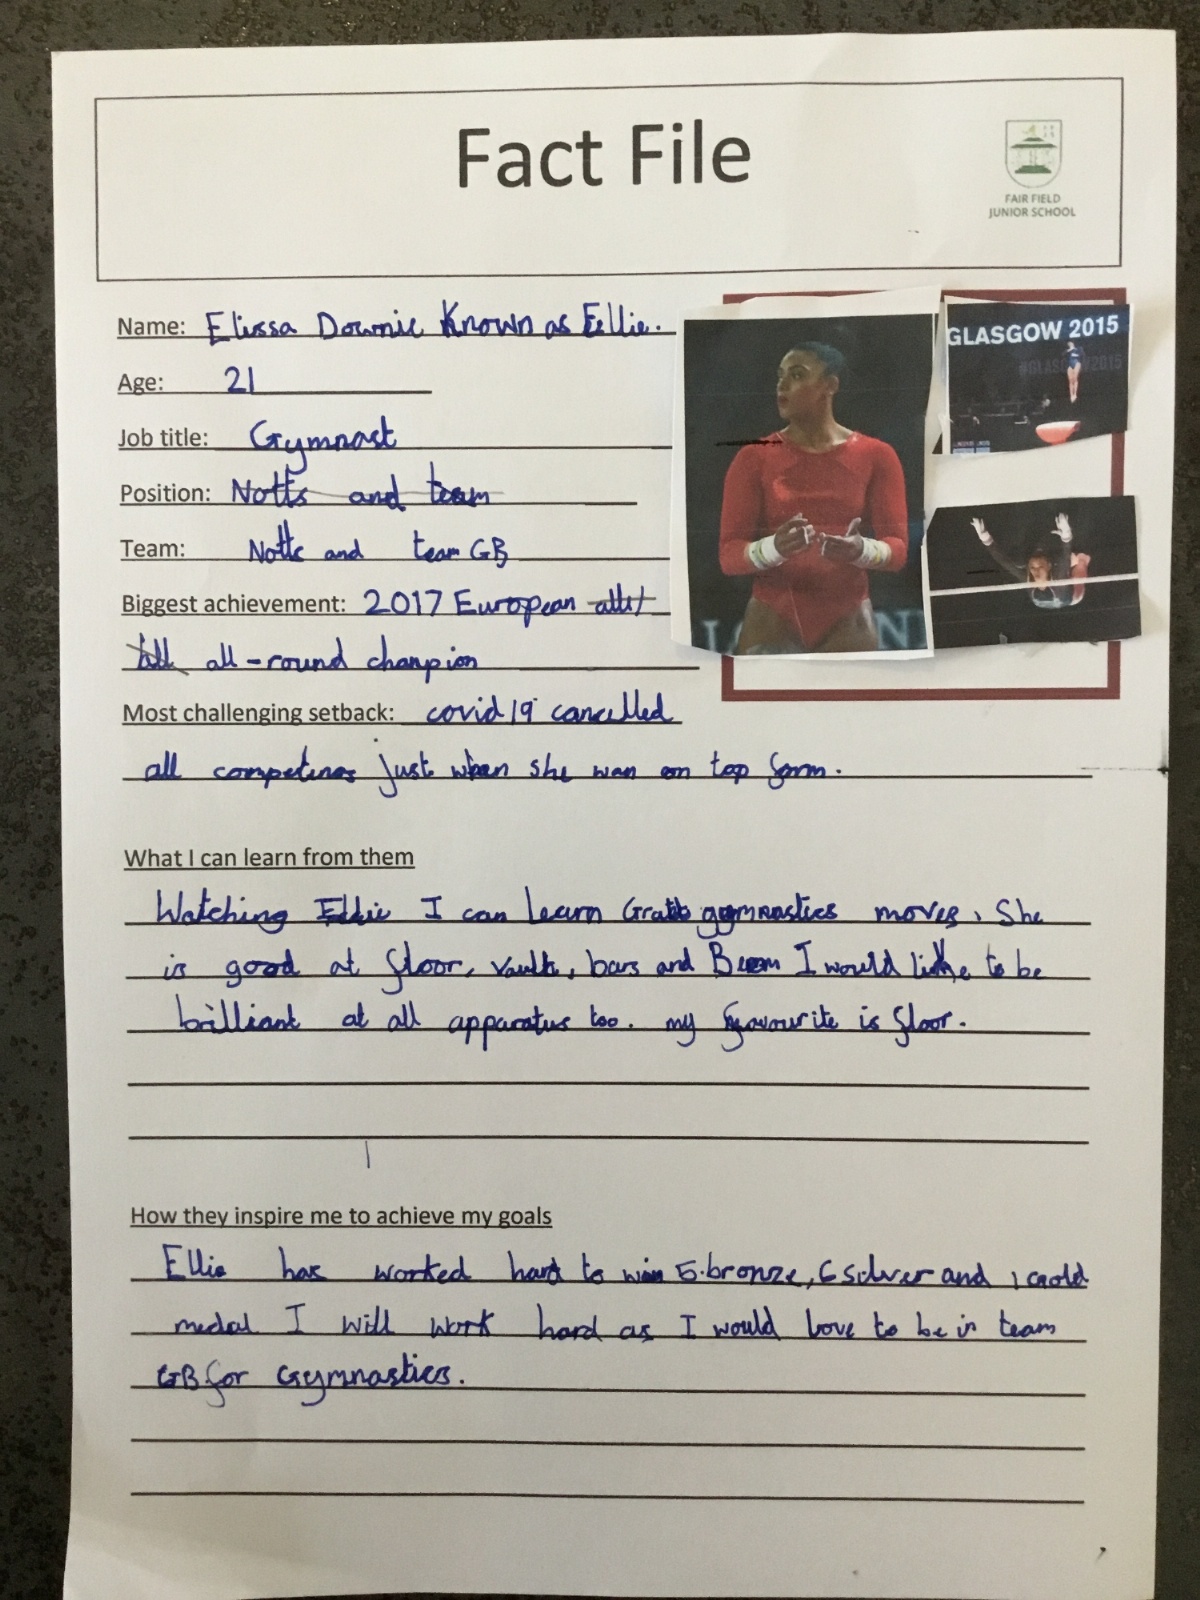 Fact File
FAIR FIELD
JUNIOR SCHOOL
Name: Elissa Downie Known as Ellie.
Age: 21
Job title: Gymnast
Position: Notts and team
Team: Notts and team GB
Biggest achievement: 2017 European
all-round champion
Most challenging setback: covid 19 cancelled
all just when she was on top form.
GLASGOW 2015
#GLASGOW2015
What I can learn from them
Watching Ellie I can learn gymnastics moves. She
is good at floor, vault, bars and Beam I would like to be
brilliant at all apparatus too. my favourite is floor.
How they inspire me to achieve my goals
Ellie has worked hard to win 5 bronze, 6 silver and 1 gold
medal I will work hard as I would love to be in team
GB for Gymnastics.